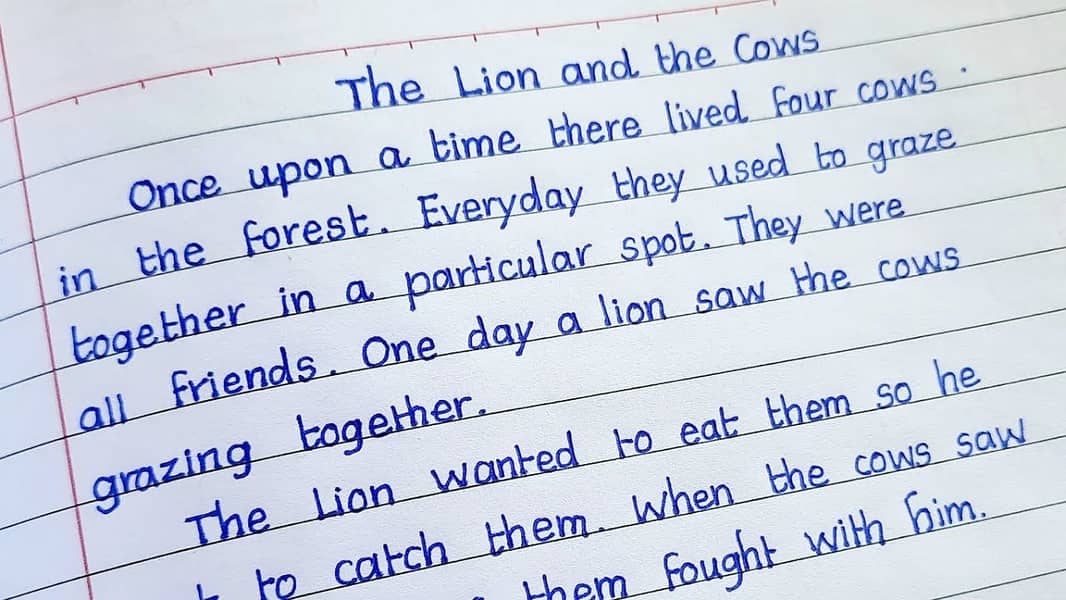 The Lion and the Cows
Once upon a time there lived four cows.
in the forest. Everyday they used to graze
together in a particular spot. They were
all friends. One day a lion saw the cows
grazing together.
The Lion wanted to eat them so he
to catch them. When the cows saw
them fought with him.